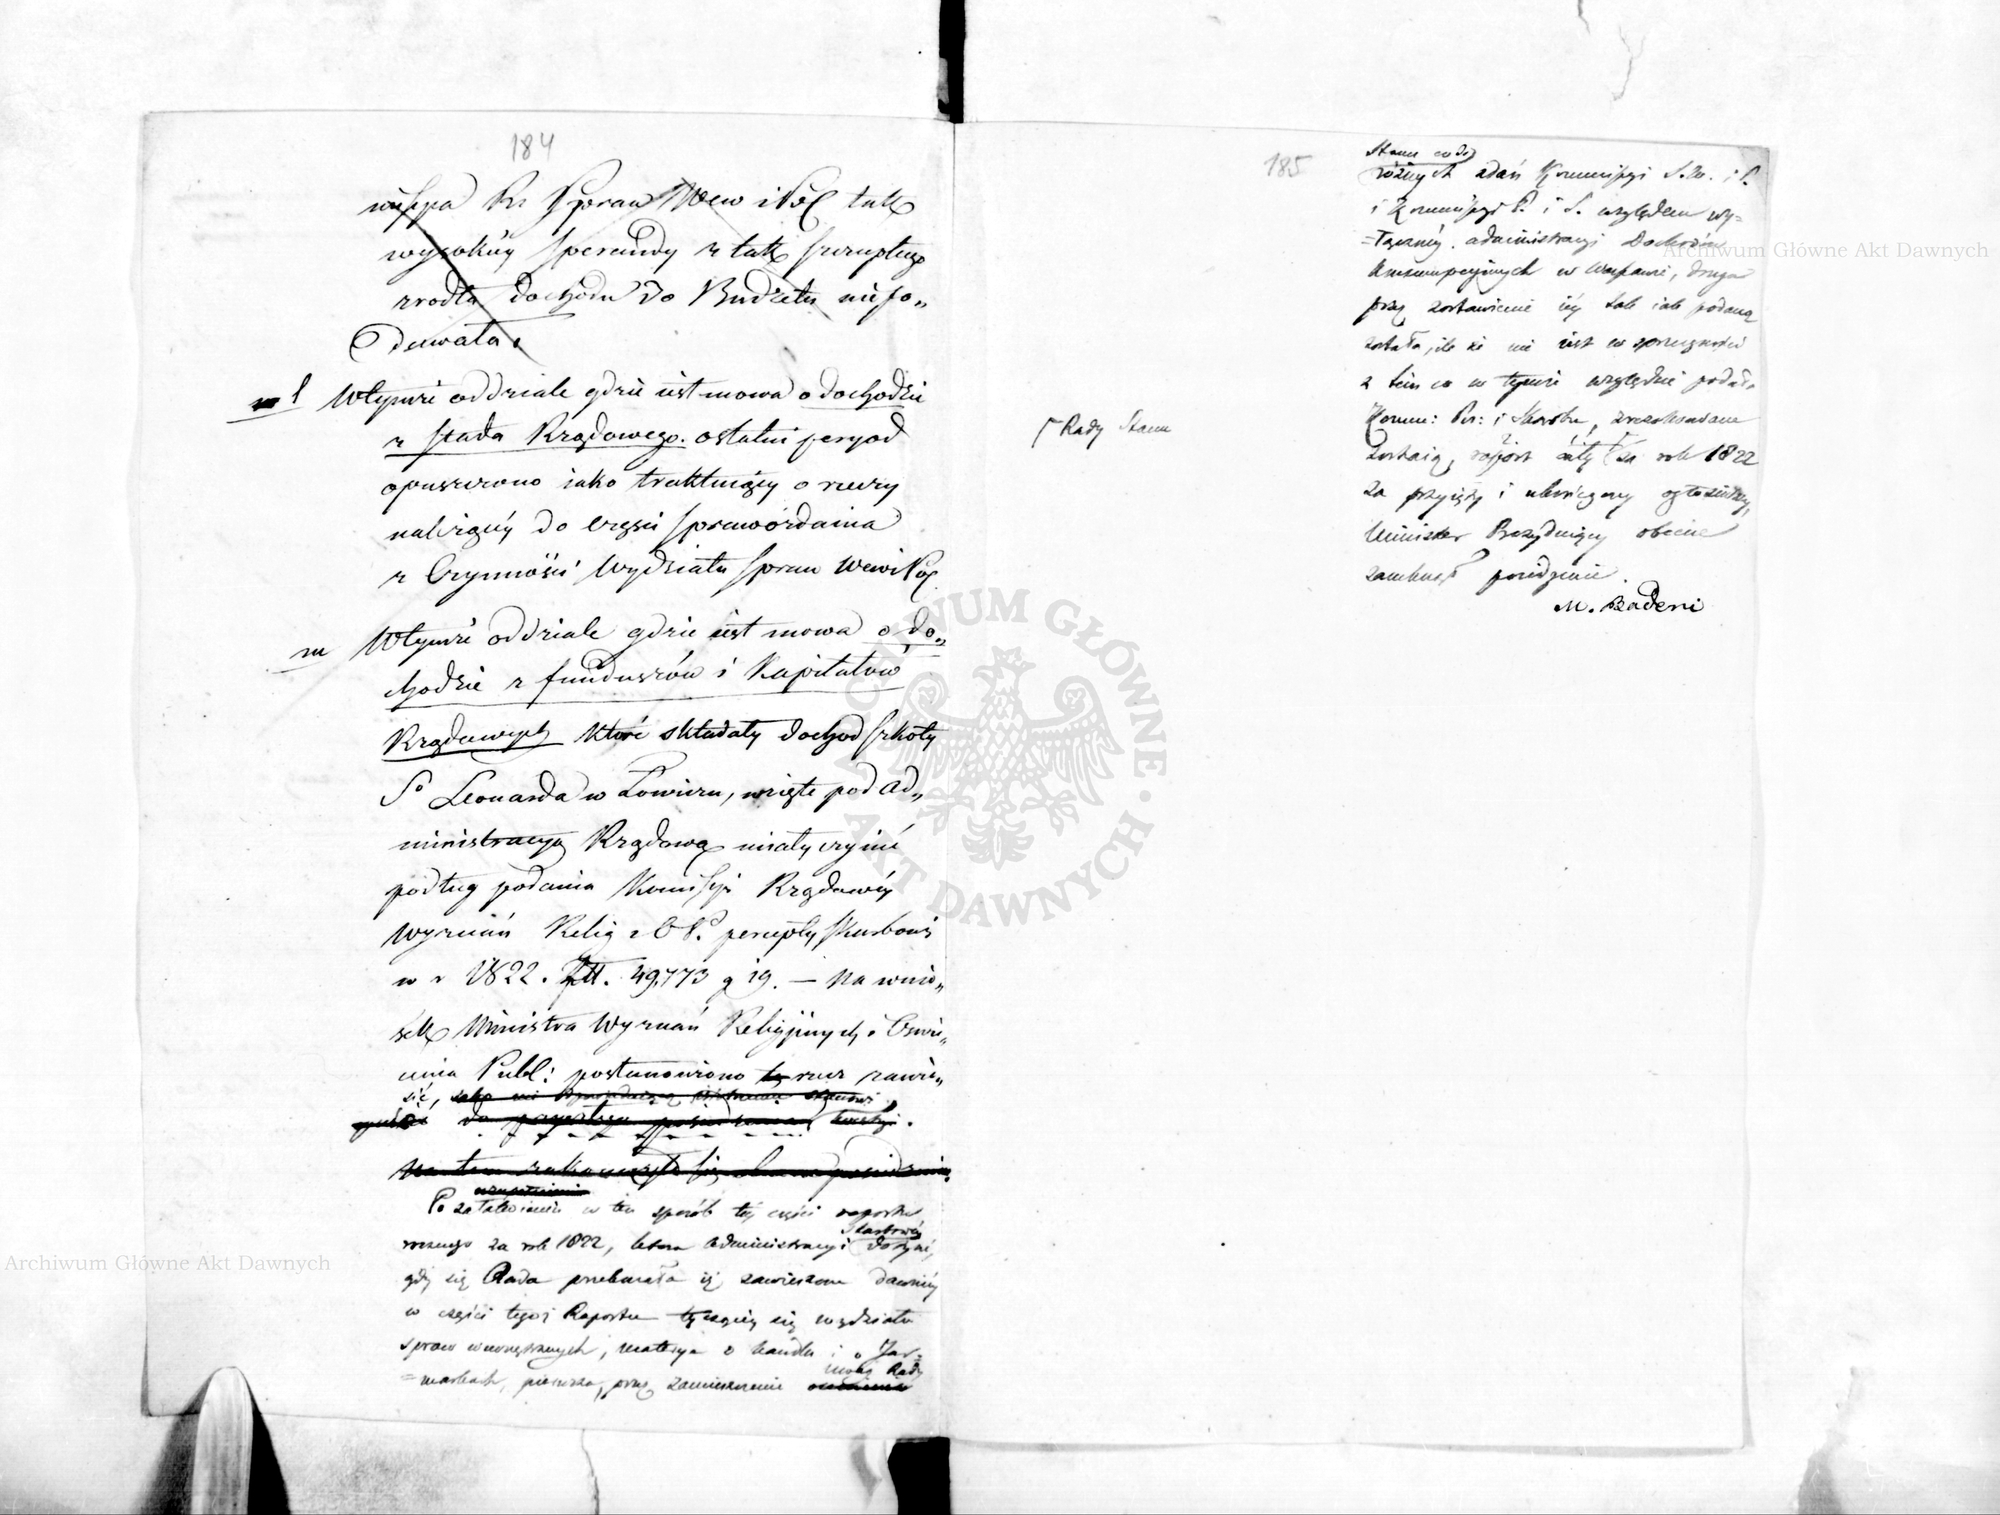 184
Kr Spraw Wew i Pol tak
wysokiéy sperandy z tak szczupłego
zrodła dochodu do Budżetu niepo„
dawała.
l W tymże oddziale gdzie iest mowa o dochodzie
z stada Rządowego. ostatni peryod
opuszczono iako traktuiący o rzeczy
należącéy do części sprawozdania
z Czynności Wydziału Spraw Wew i Pol
m W tymże oddziale gdzie iest mowa o do„
chodzie z funduszów i Kapitałów
Rządowych które składały dochod szkoły
So Leonarda w Łowiczu, wzięte pod ad„
ministracyą Rządową miały czynić
podług podania Komissyi Rządowéy
Wyznań Relig i O P. percepty skarbowéy
w r 1822. Złł. 49,773 g 19. — Na wnio„
sek Ministra Wyznań Religijnych i Oświe„
cenia Publ: postanowiono rzecz zawie„
sić,
do przyszłego posiedzenia
Na tem zakończyło się obecne posiedzenie
Po załatwieniu w ten sposób téy części raportu
Skarbowéy
rocznego za rok 1822, która administracyi dotyczé,
gdy się Rada przekonała iż zawieszone dawniéy
w części tegoż Raportu tyczącéy się wydziału
spraw wewnętrznych, materye o handlu i o Jar=
uwag Rady
=markach, pierwsza, przez zamieszczenie
185
Stanu co do
różnych zdań Kommissyi S. W. i P.
i Kommissyi P. i S. względem wy=
=łącznéy administracyi Dochodów
konsumpcyjnych w Warszawie, druga
przez zostawienie iéy tak iak podaną
została, ile że nie iest w sprzeczności
z tém co w tymże względzie podała
Komm: Prz: i Skarbu, zrezolwowane
zostaią, raport cały za rok 1822
⌈ Rady Stanu
za przyięty i ukończony ogłosiwszy,
Minister Prezyduiący obecne
zamknął posiedzenie.
M. Badeni
ARCHIWUM GŁÓWNE AKT DAWNYCH
Archiwum Główne Akt Dawnych
Archiwum Główne Akt Dawnych